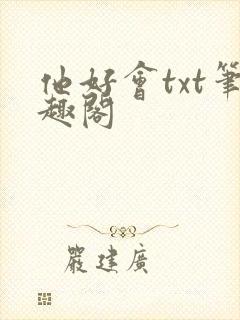 他好會txt筆
趣閣
嚴建廣